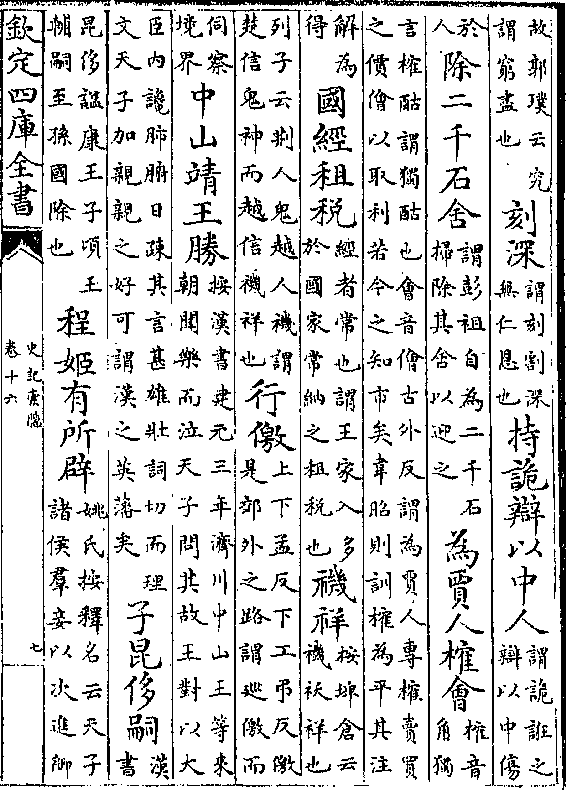 故郭璞云究謂窮盡也刻深謂刻割深無仁恩也持詭辯以中人謂詭誑之辯以中傷
於人除二千石舍謂彭祖自為二千石掃除其舍以迎之為賈人榷會榷音角獨
言榷酤謂獨酤也會音儈古外反謂為賈人專榷賣買之價儈以取利若今之知市矣韋昭則訓榷為平其注
解為得國經租税經者常也謂王家入多於國家常納之租税也禨祥按埤倉云禨祅祥也
列子云荆人鬼越人禨謂楚信鬼神而越信禨祥也行徼上下孟反下工弔反徼是郊外之路謂巡徼而
伺察境界中山靖王勝按漢書建元三年濟川中山王等來朝聞樂而泣天子問其故王對以大
臣内讒肺腑日疎其言甚雄壯詞切而理文天子加親親之好可謂漢之英藩矣子昆侈嗣漢書
昆侈諡康王子頃王輔嗣至孫國除也程姬有所辟姚氏按釋名云天子諸侯羣妾以次進御
欽定四庫全書
史記索隱
卷十六
七